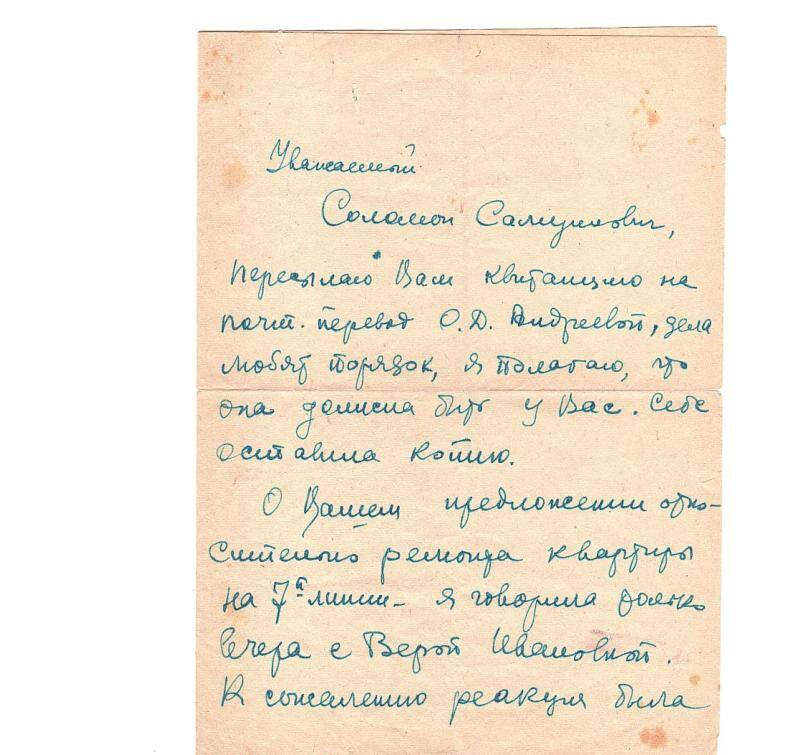 Уважаемый
Соломон Самуилович,
пересылаю Вам квитанцию на
почт. перевод О.Д. Андреевой, дела
любят порядок, я полагаю, что
она должна быть у Вас. Себе
оставила копию.
О Вашем предложении отно-
сительно ремонта квартиры
на 7й линии – я говорила только
вчера с Верой Ивановной.
К сожалению реакция была